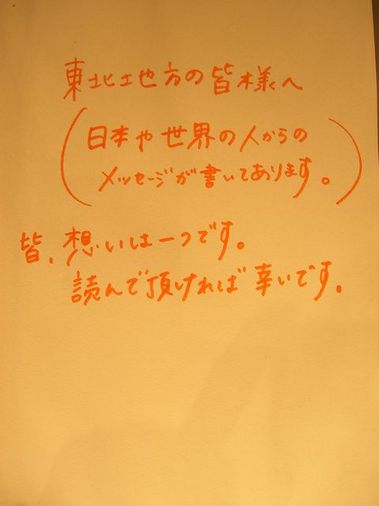 東北地方の皆様へ
(日本や世界の人からの
メッセージが書いてあります。)
皆、想いは一つです。
読んで頂ければ幸いです。